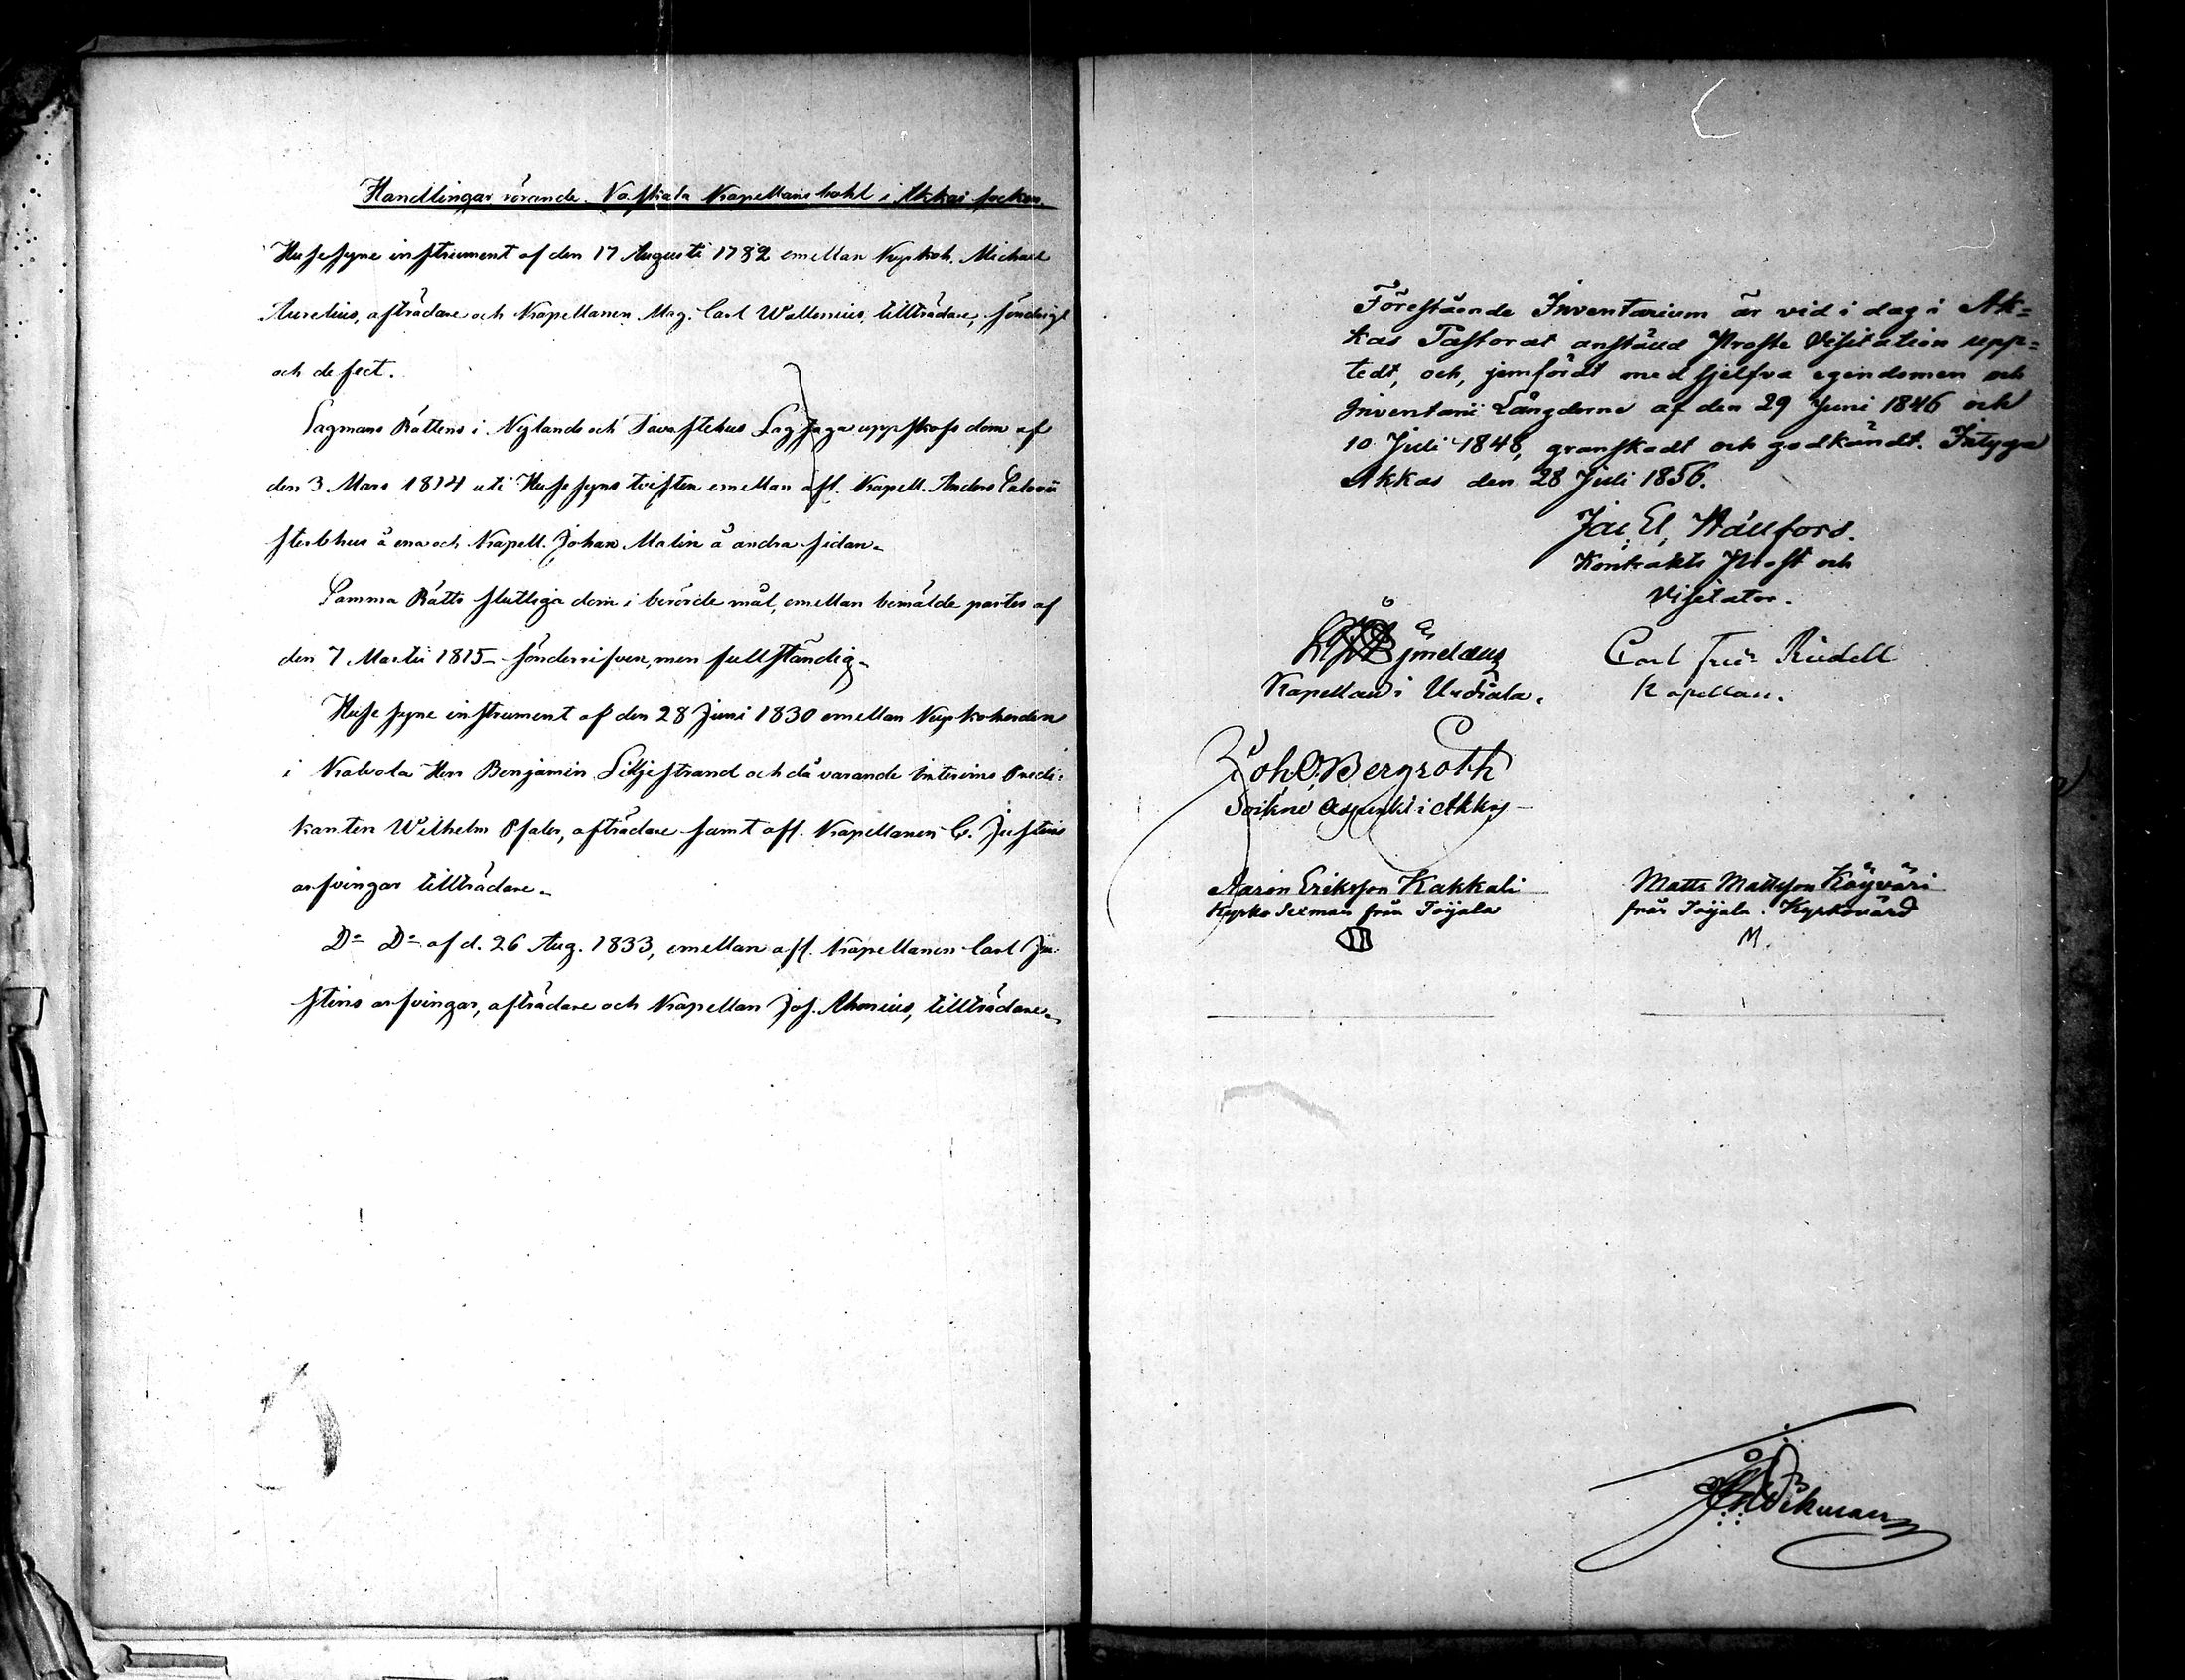 Handlingar rörande Naftiala Kapellans bohl i Akkas socken.
Husesyne instrument af den 17 Augusti 1782 emellan Kyrkoh. Michael
Aurelius, afträdare och Kapellanen Mag. Carl Wallenius, tillträdare, söndrigt
och defect.
Lagmans Rättens i Nylands och Tavastehus Lagsaga uppskofs dom af
den 3 Mars 1814 uti Husesyns tvisten emellan afl. Kapell. Anders
sterbhus å ena och Kapell. Johan Malin å andra sidan.
Samma Rätts slutliga dom i berörde mål, emellan bemälde parter af
den 7 Martii 1815 – sönderrifven, men fullständig.
Husesyne instrument af den 28 Juni 1830 emellan Kyrkoherden
i Kalvola Herr Benjamin Lilljestrand och då varande Interims Predi-
kanten Wilhelm Pfaler, afträdare samt afl. Kapellanen C. Justens
arfvingar tillträdare.
Do Do af d. 26 Aug. 1833, emellan afl. Kapellanen Carl Ju-
stens arfvingar, afträdare och Kapellan Jos. Ahonius, tillträdare.
Förestående Inventarium är vid i dag i Ak=
kas Pastorat anstäld Proste Visitation upp=
tedt, och, jemfördt med sjelfva egendomen och
Inventarii Längderne af den 29 Juni 1846 och
10 Juli 1848, granskadt och godkändt. Intyga
Akkas den 28 Juli 1856.
Jac. El. Hällfors.
Kontrakts Prost och
Visitator.
Carl Fredr Riidell
Kapellan i Urdiala.
Kapellan.
Joh. O. Bergroth
Sockne Adjunkt i Akkas
Aaron Eriksson Kakkali
Matts Mattsson Käyväri
Kyrko Sexman från Toijala
från Toijala. Kyrkovärd
M.